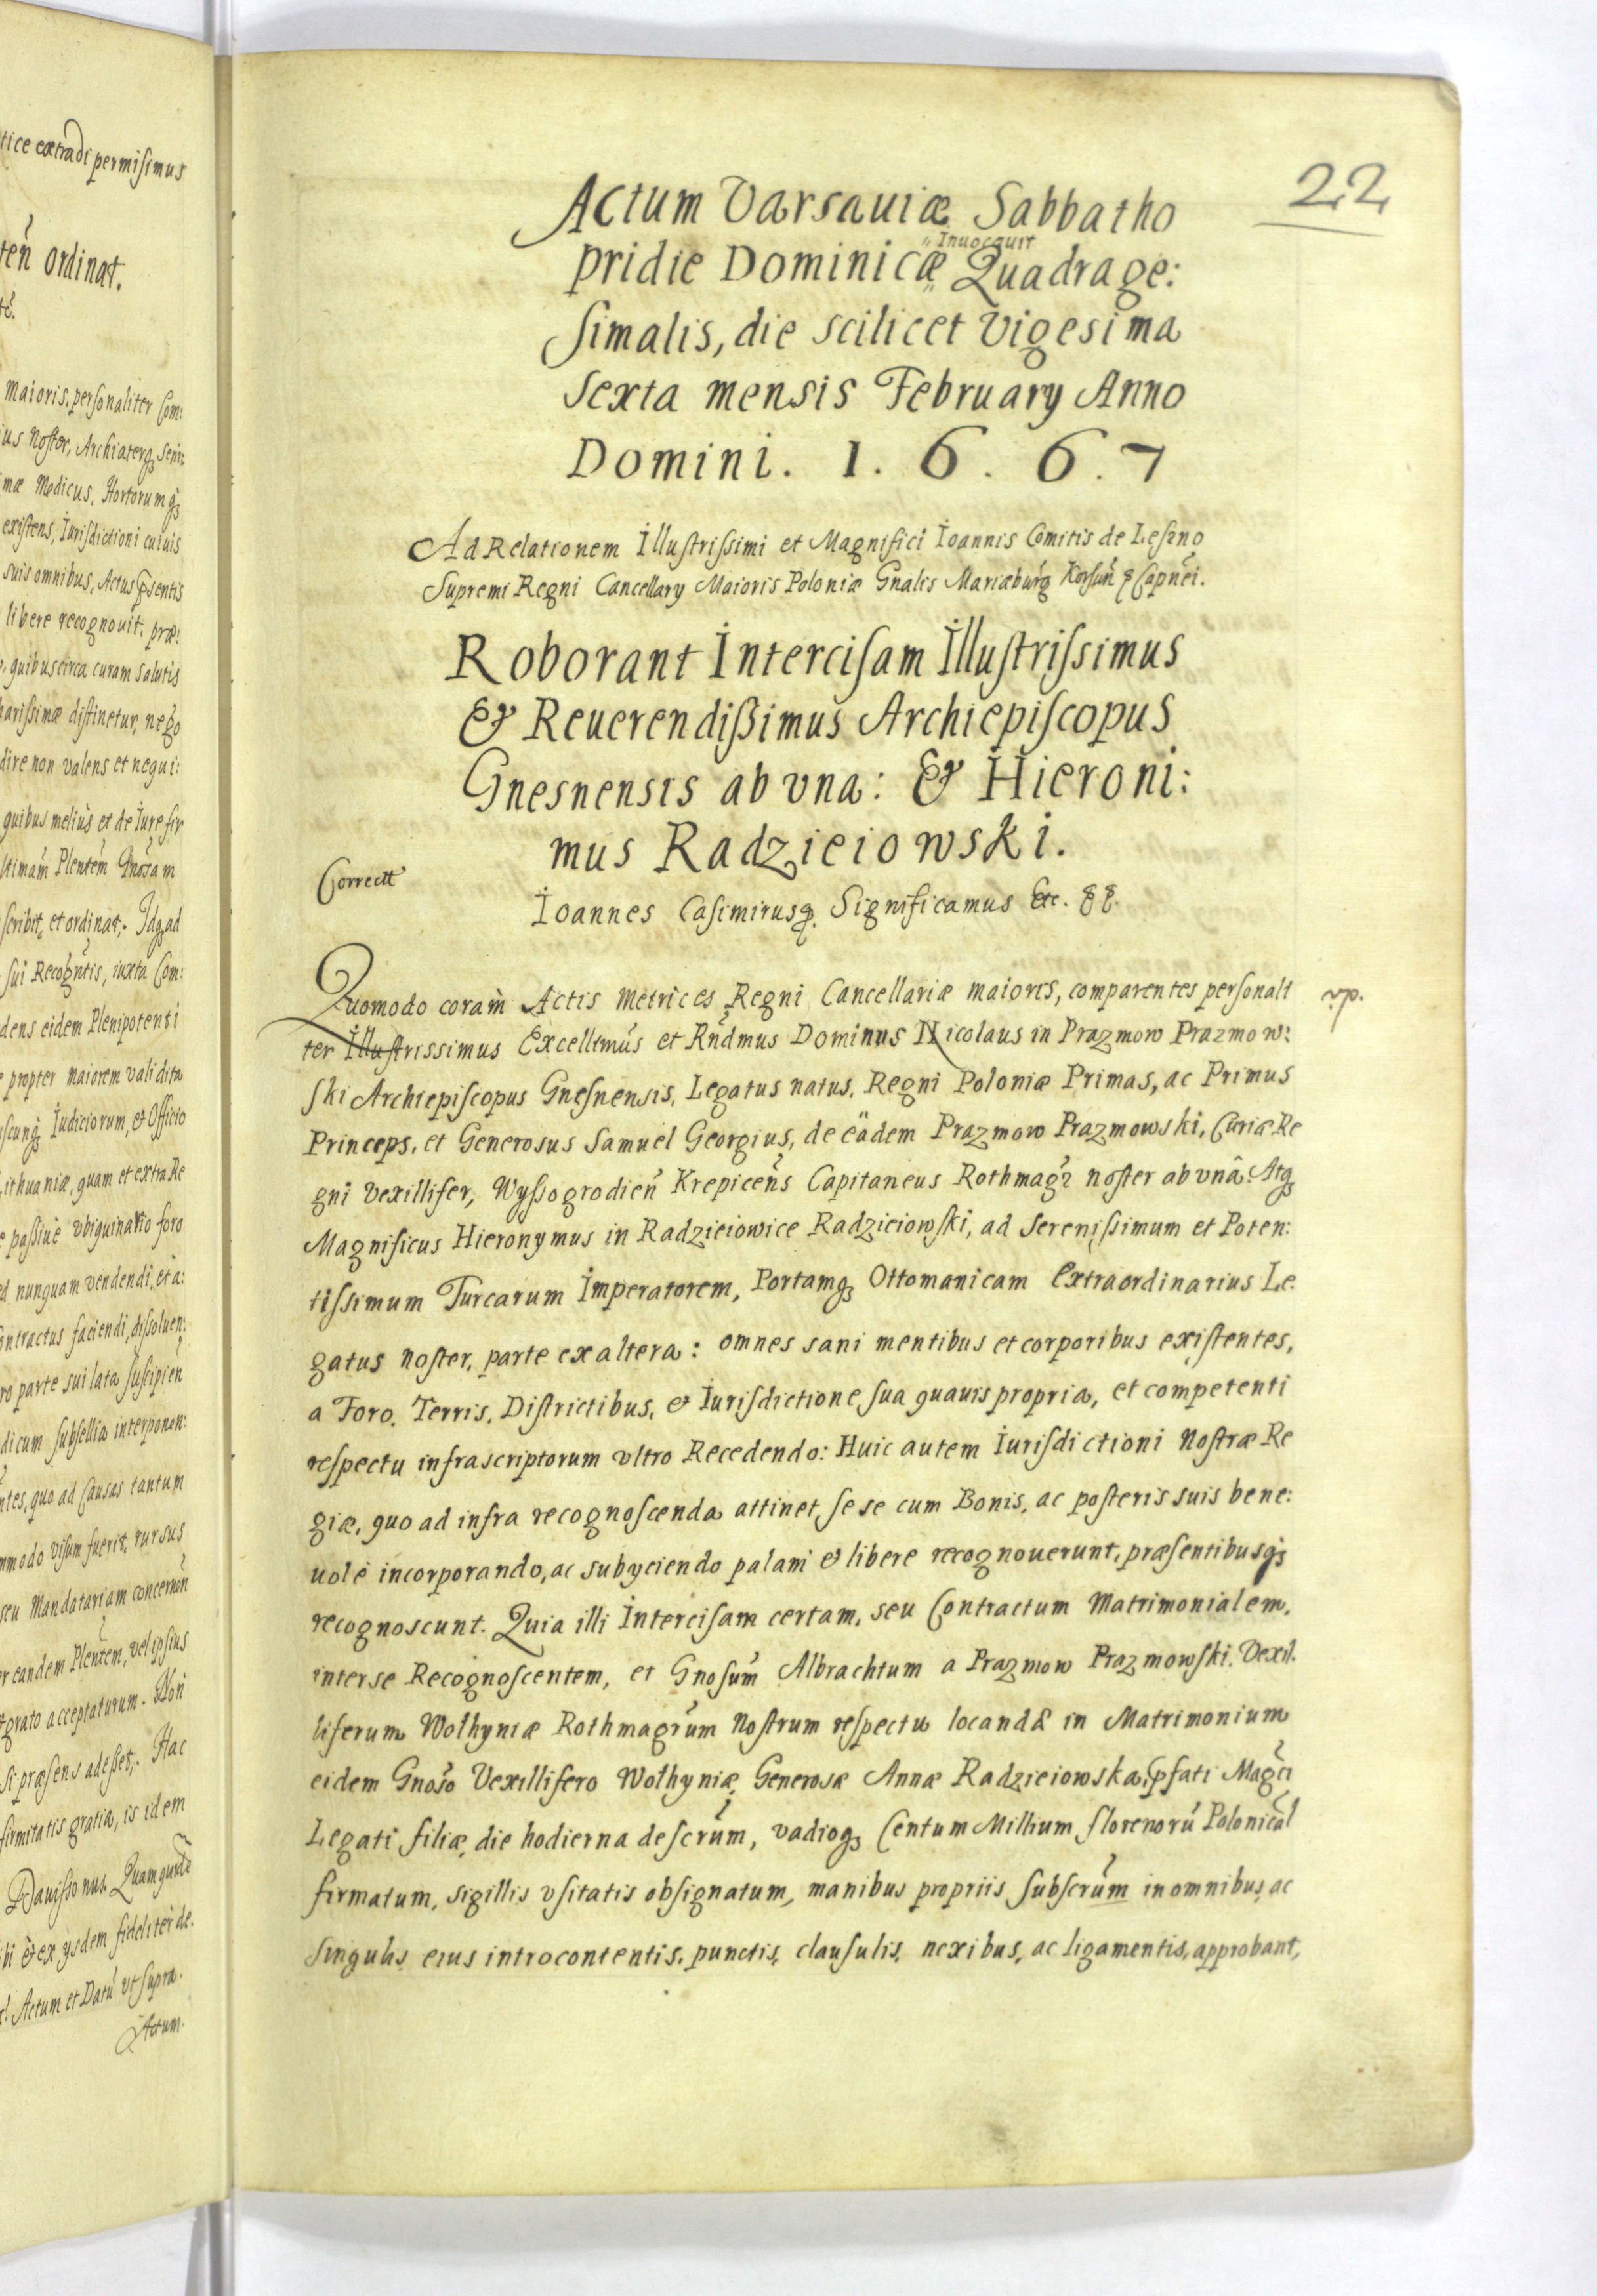 tice extradi permisimus
ten ordinat.
maioris. personaliter Com:
ius Noster, Archiaterq Seni:
mæ Medicus, Hortorumq
existens, Iurisdictioni cuiuis
suis omnibus, Actus psentis
libere recognouit. præ:
quibus circa curam salutis
harissimæ distinetur, nego
dire non valens et nequi:
quibus melius et de Iure fir
ltimam Plentem Gnosam
scribit, et ordinat. Idq ad
sui Recogntis, iuxta Com:
dens eidem Plenipotenti
propter maiorem validita
scunq Iudiciorum, & Officio
Lithuaniæ, quam et extra Re
passiue vbiquinario foro
ed nunquam vendendi, et a:
ontractus faciendi, dissoluen:
ro parte sui lata suscipien
dicum subsellia interponen:
ntes, quo ad Causas tantum
mmodo visum fuerit, rursus
seu Mandatariam concernen
er eandem Plentem, vel ipsius
grato acceptaturum. Non
si præsens adesset. Hac
firmitatis gratia, is idem
Dauissonus. Quam quidē
ibi & ex ysdem fideliter de.
Actum et Datū vt supra.
Actum.
22
Actum Varsauiæ Sabbatho
Inuocauit
pridie Dominicæ Quadrage:
simalis, die scilicet Vigesima
sexta mensis February Anno
Domini. 1. 6. 6. 7
Ad Relationem Illustrissimi et Magnifici Ioannis Comitis de Leszno
Supremi Regni Cancellary Maioris Poloniæ Gnalis Mariæburg Korsun & Capnei.
Roborant Intercisam Illustrissimus
& Reuerendissimus Archiepiscopus
Gnesnensis ab vna: & Hieroni:
mus Radzieiowski.
Correctt
Ioannes Casimirus &. Significamus Etc. & &.
Quomodo coram Actis Metrices Regni Cancellariæ maioris, comparentes personali
vp.
ter Illustrissimus Excelltmus et Rndmus Dominus Nicolaus in Prazmow Prazmow:
ski Archiepiscopus Gnesnensis, Legatus natus, Regni Poloniæ Primas, ac Primus
Princeps, et Generosus Samuel Georgius, de eadem Prazmow Prazmowski, Curiæ Re
gni Vexillifer, Wyssogrodien Krepicens Capitaneus Rothmagr noster ab vnâ. Atq
Magnificus Hieronymus in Radzieiowice Radzieiowski, ad Serenissimum et Poten:
tissimum Turcarum Imperatorem, Portamq Ottomanicam Extraordinarius Le:
gatus noster, parte ex altera: omnes sani mentibus et corporibus existentes,
a Foro, Terris, Districtibus, & Iurisdictione sua quauis propria, et competenti
respectu infrascriptorum vltro Recedendo: Huic autem Iurisdictioni Nostræ Re
giæ, quo ad infra recognoscenda attinet, se se cum Bonis, ac posteris suis bene:
uole incorporando, ac subyciendo palam & libere recognouerunt, præsentibusq
recognoscunt. Quia illi Intercisam certam, seu Contractum Matrimonialem,
inter se Recognoscentem, et Gnosum Albrachtum a Prazmow Prazmowski. Vexil.
liferum Wołhyniæ Rothmagrum Nostrum respectu locandæ in Matrimonium
eidem Gnoso Vexillifero Wołhyniæ, Generosæ Annæ Radzieiowska, pfati Magci
Legati filiæ, die hodierna descrum, vadioq Centum Millium florenorū Polonical
firmatum, sigillis vsitatis obsignatum, manibus propriis subscrum in omnibus, ac
singulis eius introcontentis, punctis, clausulis, nexibus, ac ligamentis, approbant,